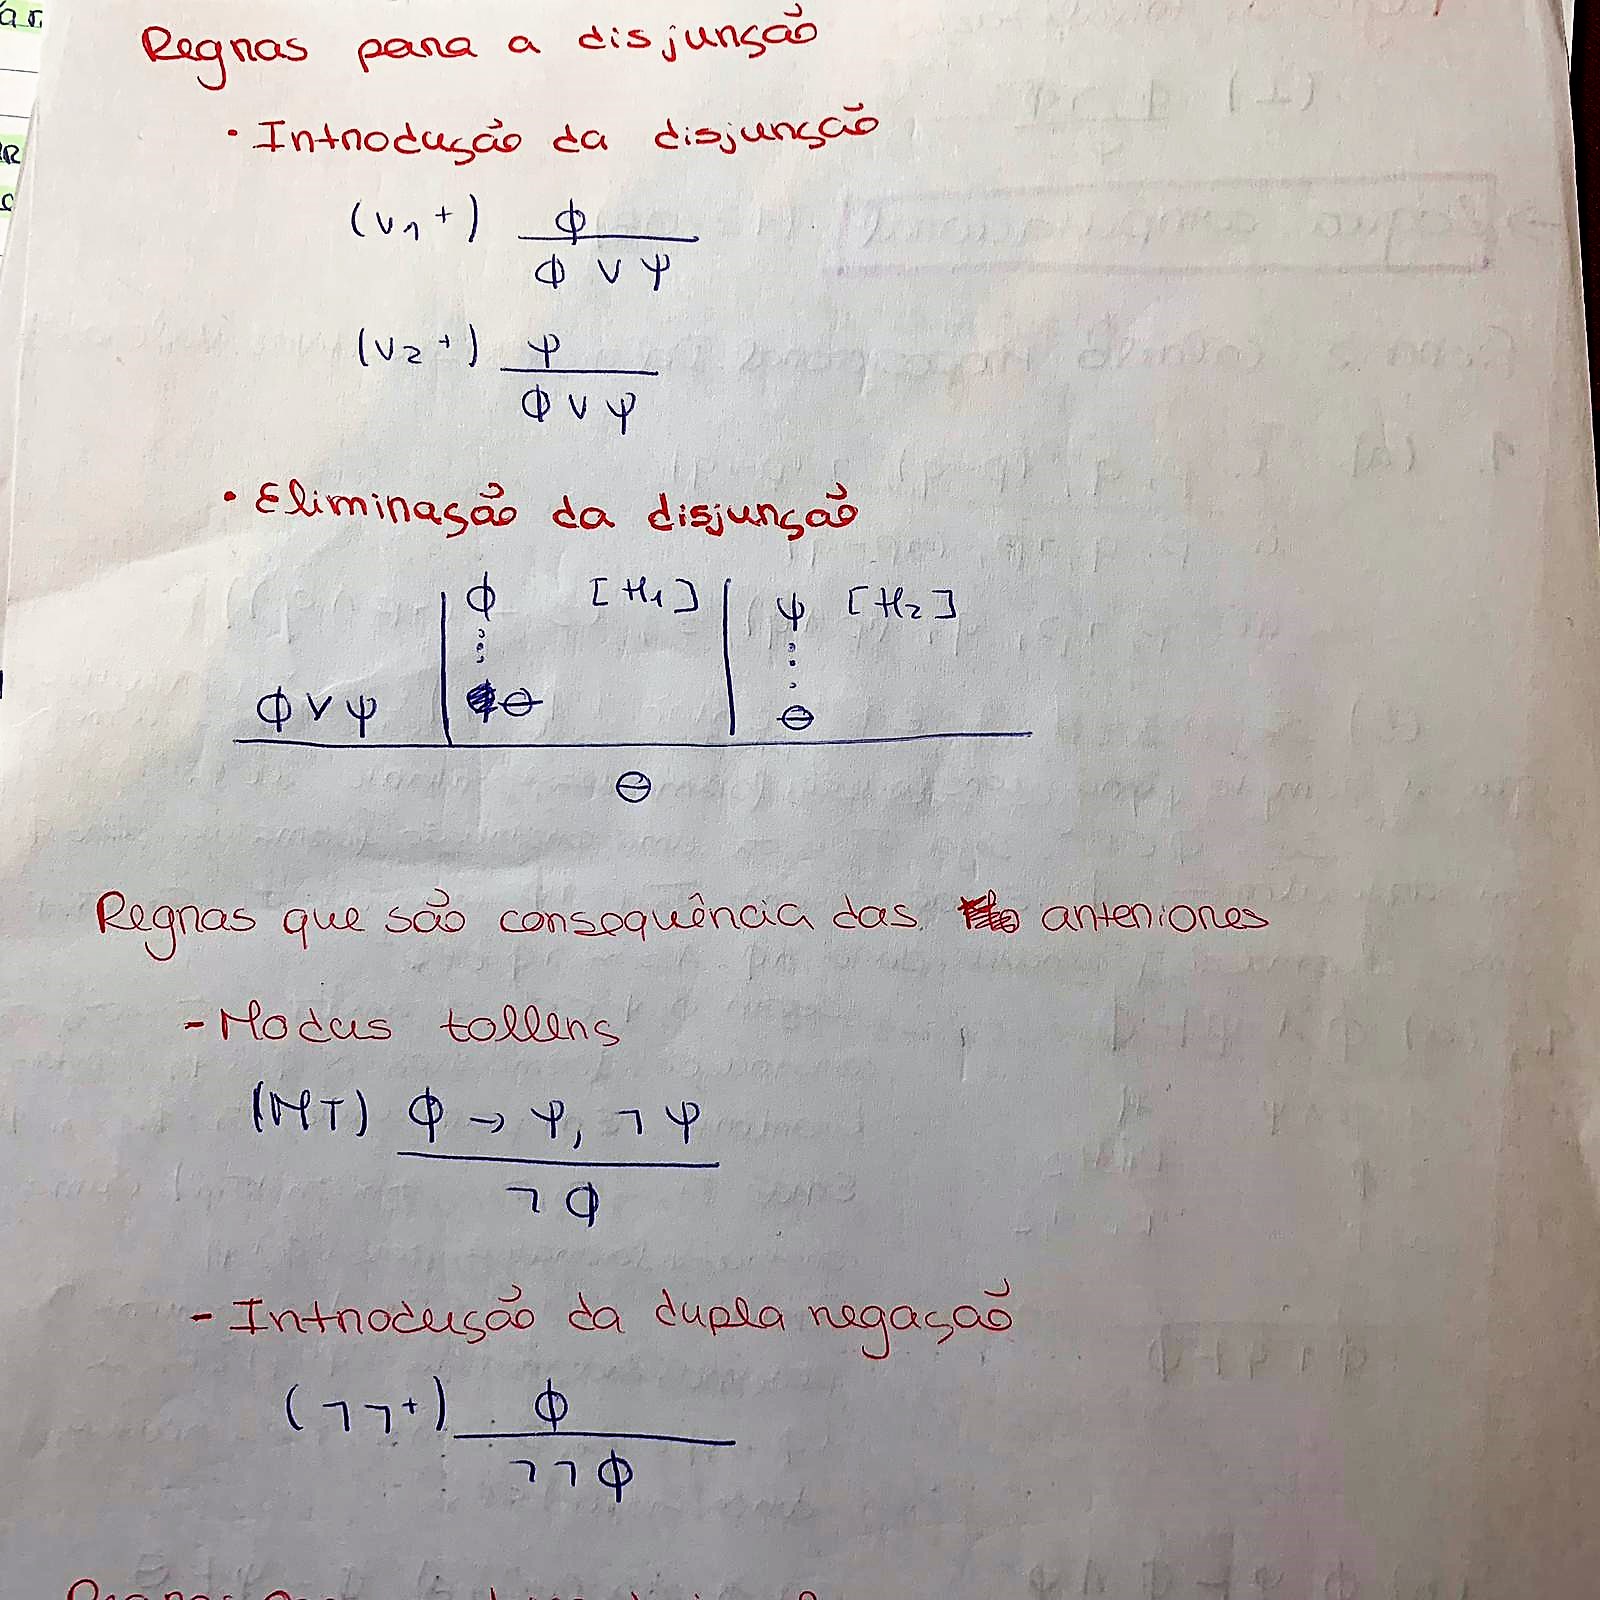 Regras para a disjunção
• Introdução da disjunção
(∨₁+) ϕ
ϕ ∨ ψ
(∨₂+) ψ
ϕ ∨ ψ
• Eliminação da disjunção
ϕ [H₁] ψ [H₂]
⋮ ⋮
ϕ ∨ ψ θ θ
θ
Regras que são consequência das anteriores
- Modus tollens
(MT) ϕ → ψ, ¬ψ
¬ϕ
- Introdução da dupla negação
(¬¬+) ϕ
¬¬ϕ